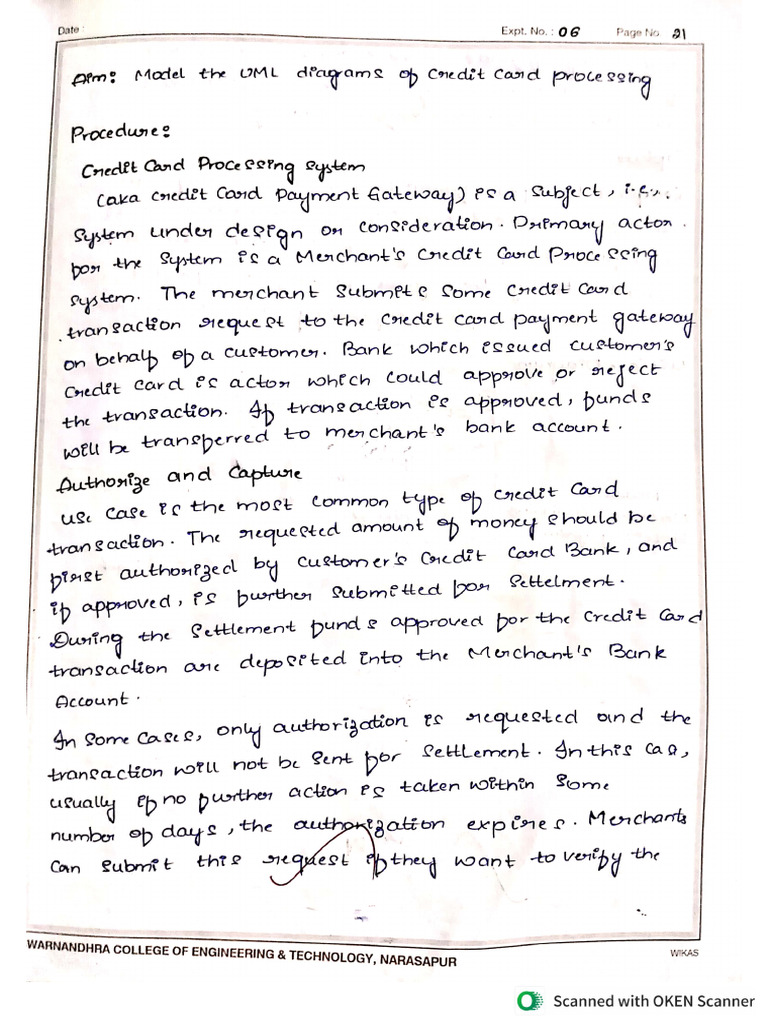 Date :
Expt. No. : 06
Page No 21
Aim: Model the UML diagrams of Credit Card processing
Procedure:
Credit Card Processing System
(aka Credit Card Payment Gateway) is a Subject, i.e.,
System under design or consideration. Primary actor
for the System is a Merchant's Credit Card Processing
System. The merchant Submits Some Credit Card
transaction request to the credit card payment gateway
on behalf of a customer. Bank which issued customer's
Credit card is actor which could approve or reject
the transaction. If transaction is approved, funds
will be transferred to merchant's bank account.
Authorize and Capture
use case is the most common type of credit card
transaction. The requested amount of money should be
first authorized by customer's Credit Card Bank, and
if approved, is further submitted for Settelment.
During the Settlement funds approved for the Credit Card
transaction are deposited into the Merchant's Bank
Account.
In Some Cases, only authorization is requested and the
transaction will not be sent for Settlement. In this
usually if no further action is taken within Some
number of days, the authorization expires. Merchants
Can Submit this request if they want to verify the
WARNANDHRA COLLEGE OF ENGINEERING & TECHNOLOGY, NARASAPUR
WIKAS
Scanned with OKEN Scanner